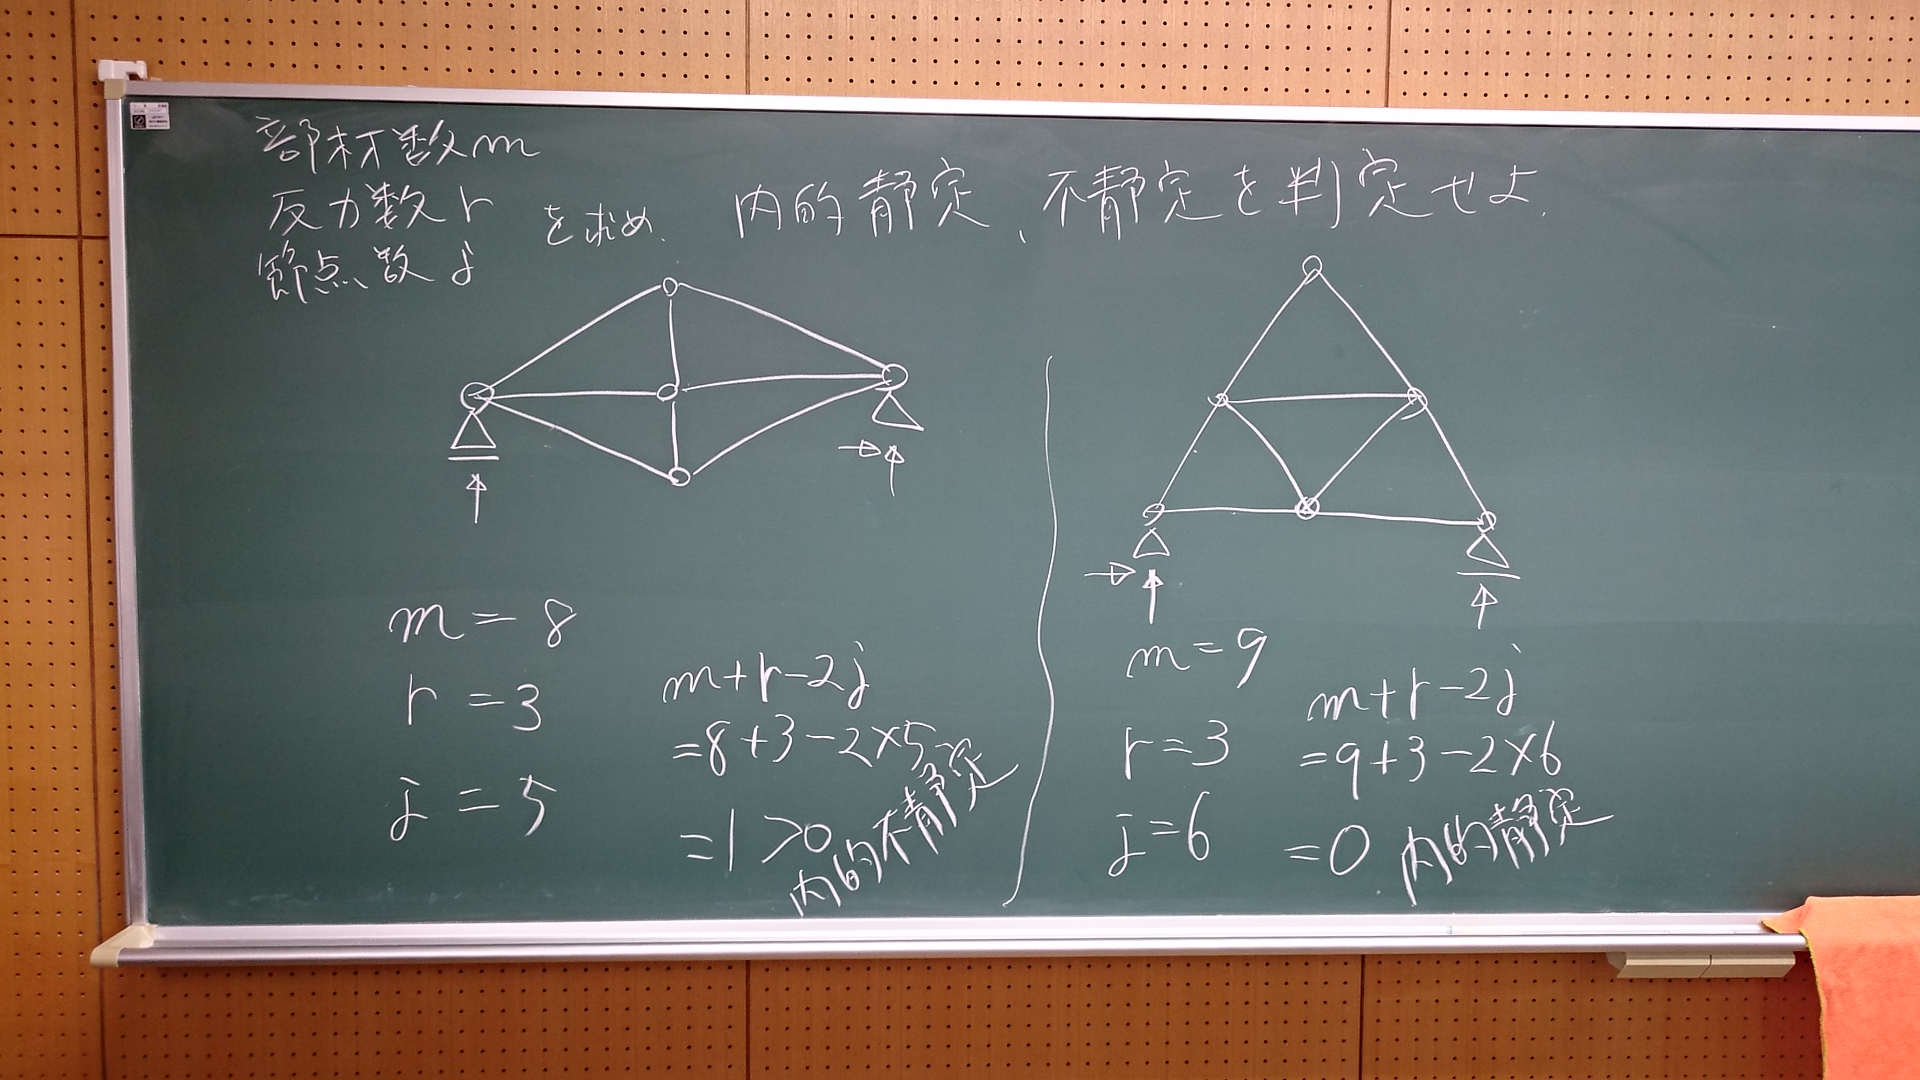 部材数m
反力数r
節点数j
を求め、内的静定、不静定を判定せよ.
m=8
r=3
j=5
m+r-2j
=8+3-2×5
=1>0
内的不静定
m=9
r=3
j=6
m+r-2j
=9+3-2×6
=0 内的静定